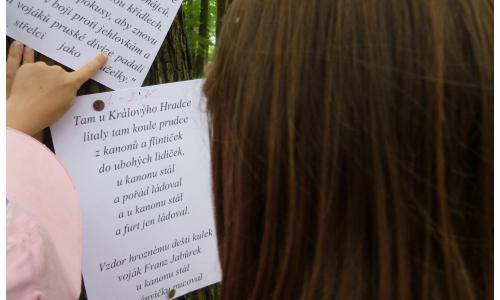 pokusy, aby znovu
v boji proti jehlovkám a
vojáků pruské divize padali
střelci jako
Tam u Královýho Hradce
lítaly tam koule prudce
z kanonů a flintiček
do ubohých lidiček,
u kanonu stál
a pořád ládoval
a u kanonu stál
a furt jen ládoval.
Vzdor hroznému dešti kulek
voják Franz Jabůrek
u kanonu stál